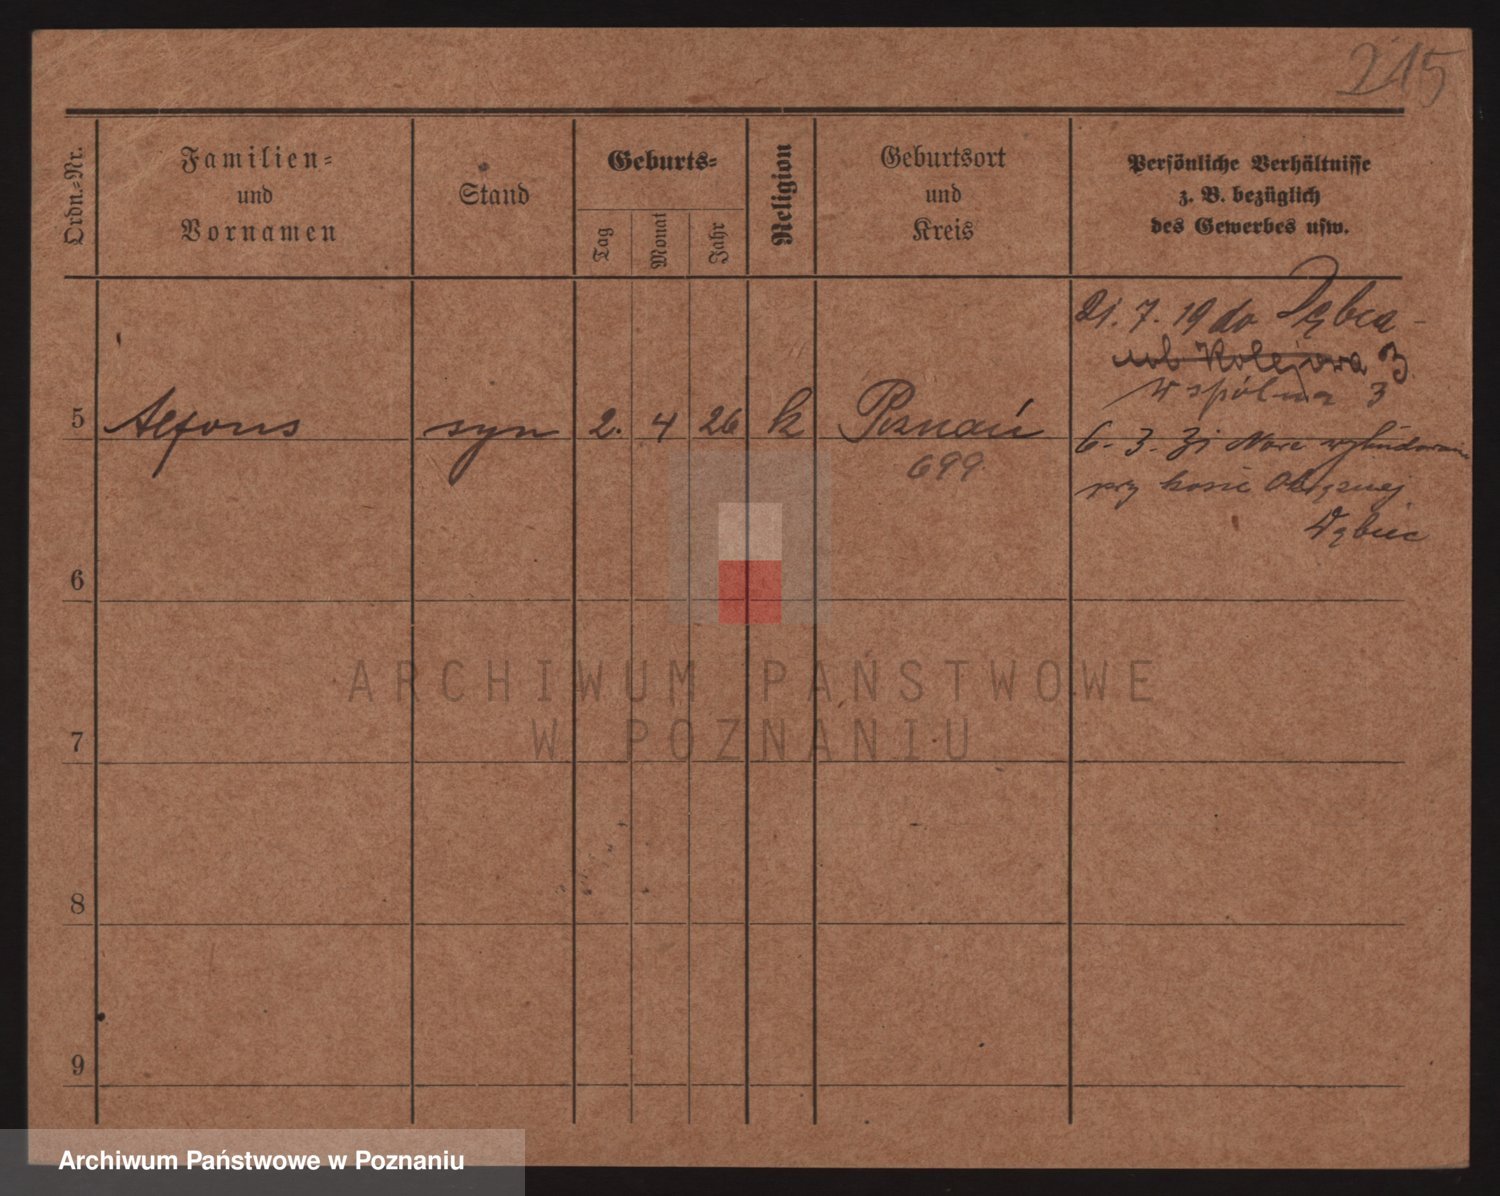 215
Ordn.=Nr.
Familien=
und
Vornamen
Stand
Geburts=
Tag
Monat
Jahr
Religion
Geburtsort
und
Kreis
Persönliche Verhältnisse
z. B. bezüglich
des Gewerbes usw.
21. 7. 19 do Dębca -
Kolejowa 3
wspólna 3
5 Alfons syn 2. 4 26 k Poznań
699
6 - 3 - 31 Nowe wybudowanie
przy
Dębiec
6
7
8
9
ARCHIWUM PAŃSTWOWE
W POZNANIU
Archiwum Państwowe w Poznaniu